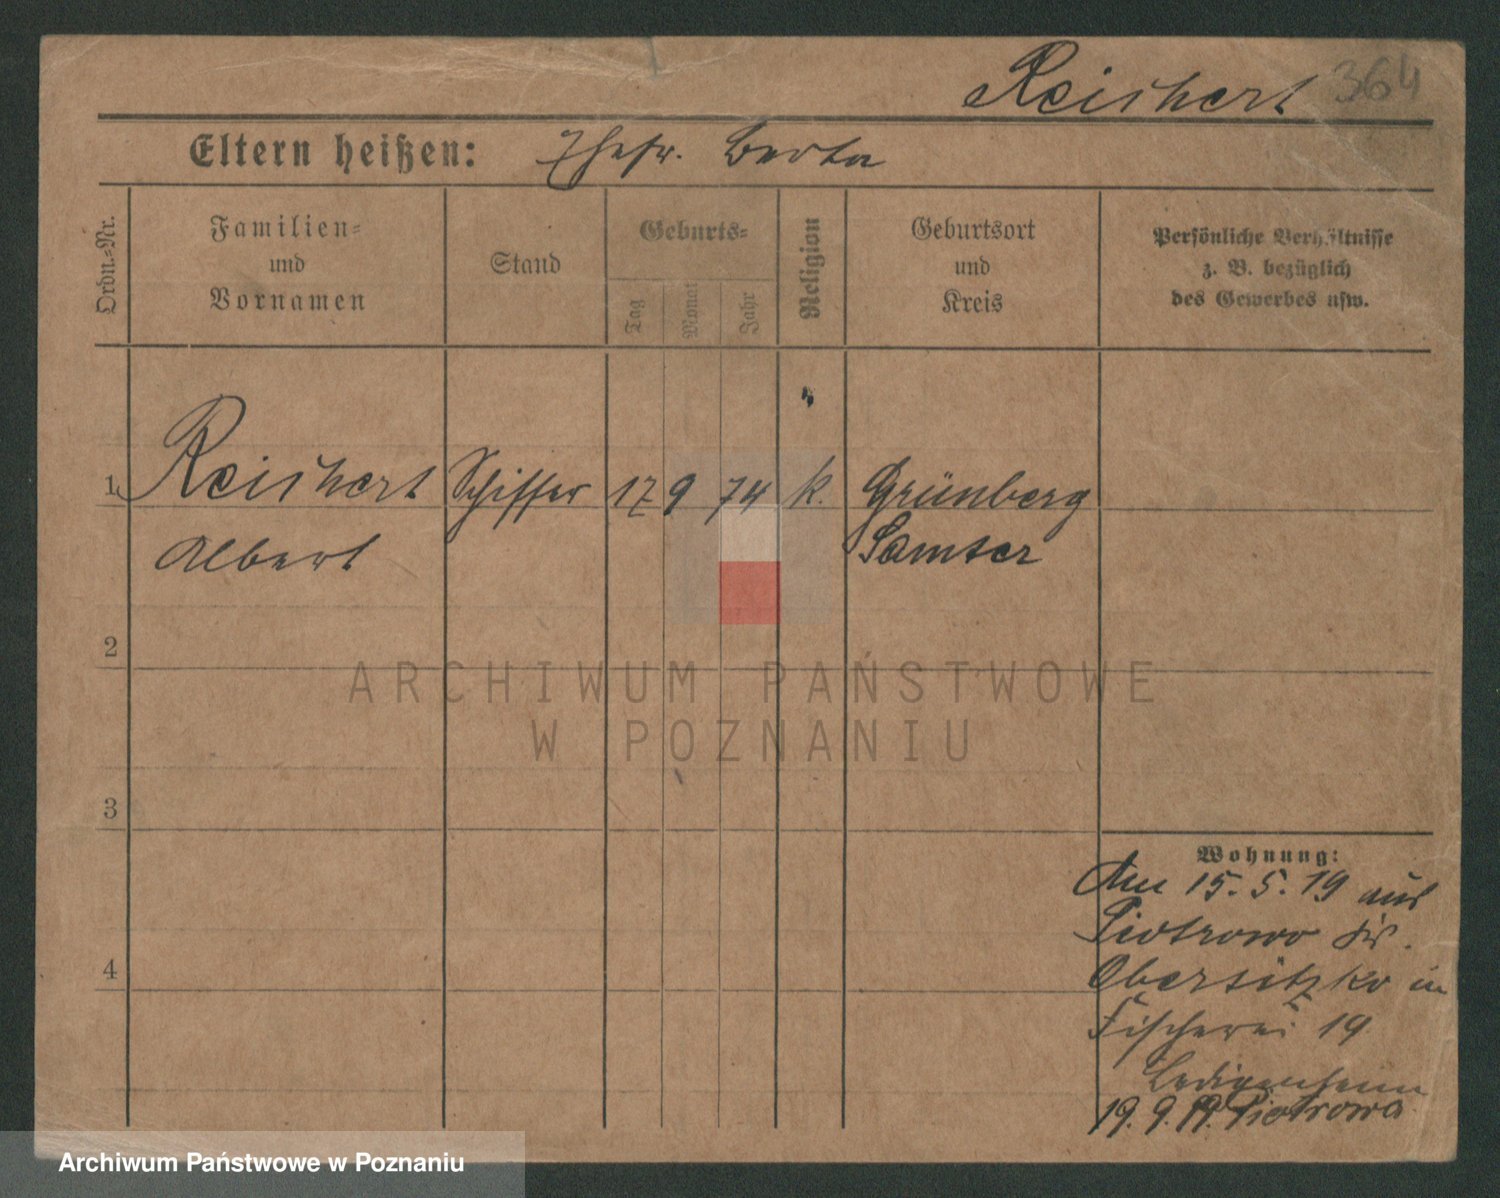 Reichert 364
Eltern heißen: Ehefr. Berta
Ordn.-Nr.
Familien-
und
Vornamen
Stand
Geburts-
Tag
Monat
Jahr
Religion
Geburtsort
und
Kreis
Persönliche Verhältnisse
z. B. bezüglich
des Gewerbes usw.
1 Reichert Schiffer 17 9 74 k. Grünberg
Albert Samter
2
3
4
Wohnung:
Am 15. 5. 19 aus
Piotrowo Kr.
Obersitzko in
Fischerei 19
Ledigenheim
19. 9. 19. Piotrowo
ARCHIWUM PAŃSTWOWE
W POZNANIU
Archiwum Państwowe w Poznaniu